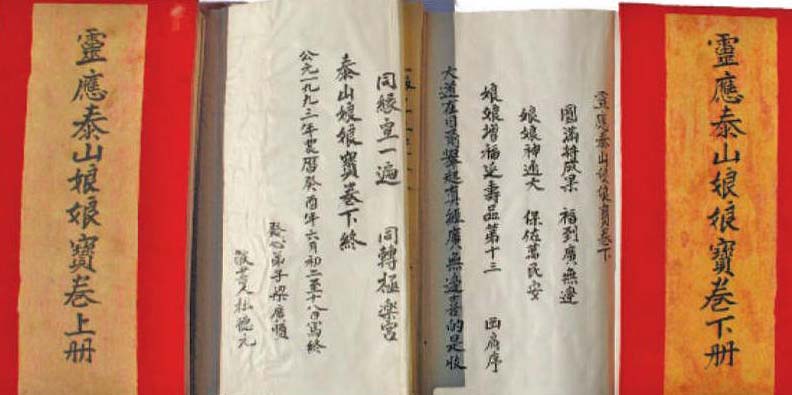 靈應泰山娘娘寶卷下册
靈應泰山娘娘寶卷下
圓滿將成果 福到廣無邊
娘娘神通大 保佐萬民安
娘娘增福延壽品第十三 画眉序
大道在目前舉起真經廣無邊善的是收
同緣宣一遍 同轉極楽宮
泰山娘娘寶卷下終
公元一九九三年农曆癸酉年六月初二至十八日寫終
發心弟子梁廣順
人杜德元
靈應泰山娘娘寶卷上册